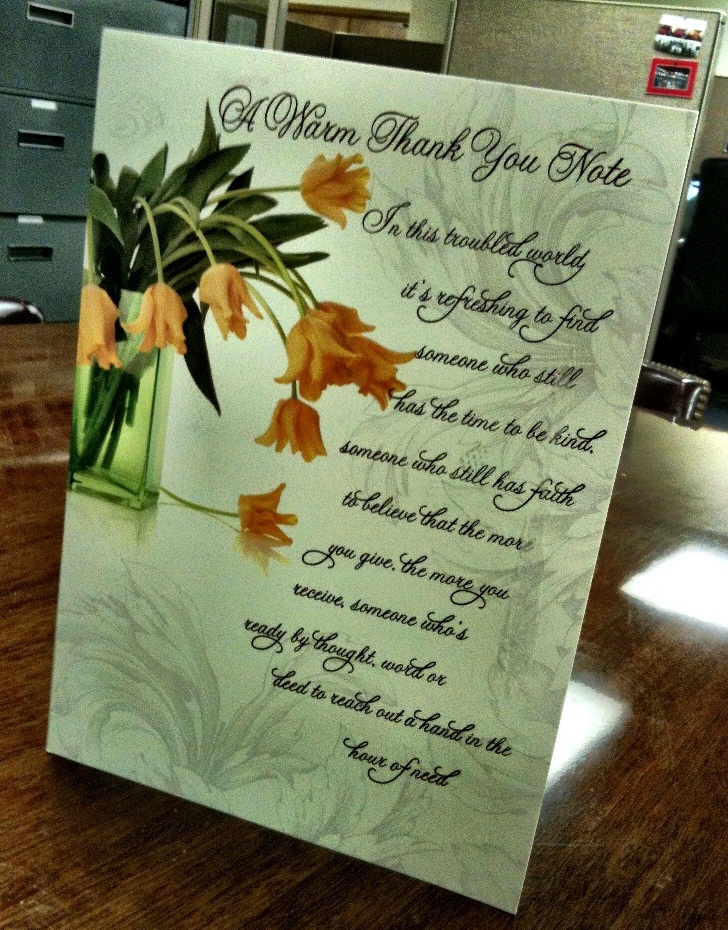 A Warm Thank You Note
In this troubled world
it's refreshing to find
someone who still
has the time to be kind,
someone who still has faith
to believe that the more
you give, the more you
receive, someone who's
ready by thought, word or
deed to reach out a hand in the
hour of need